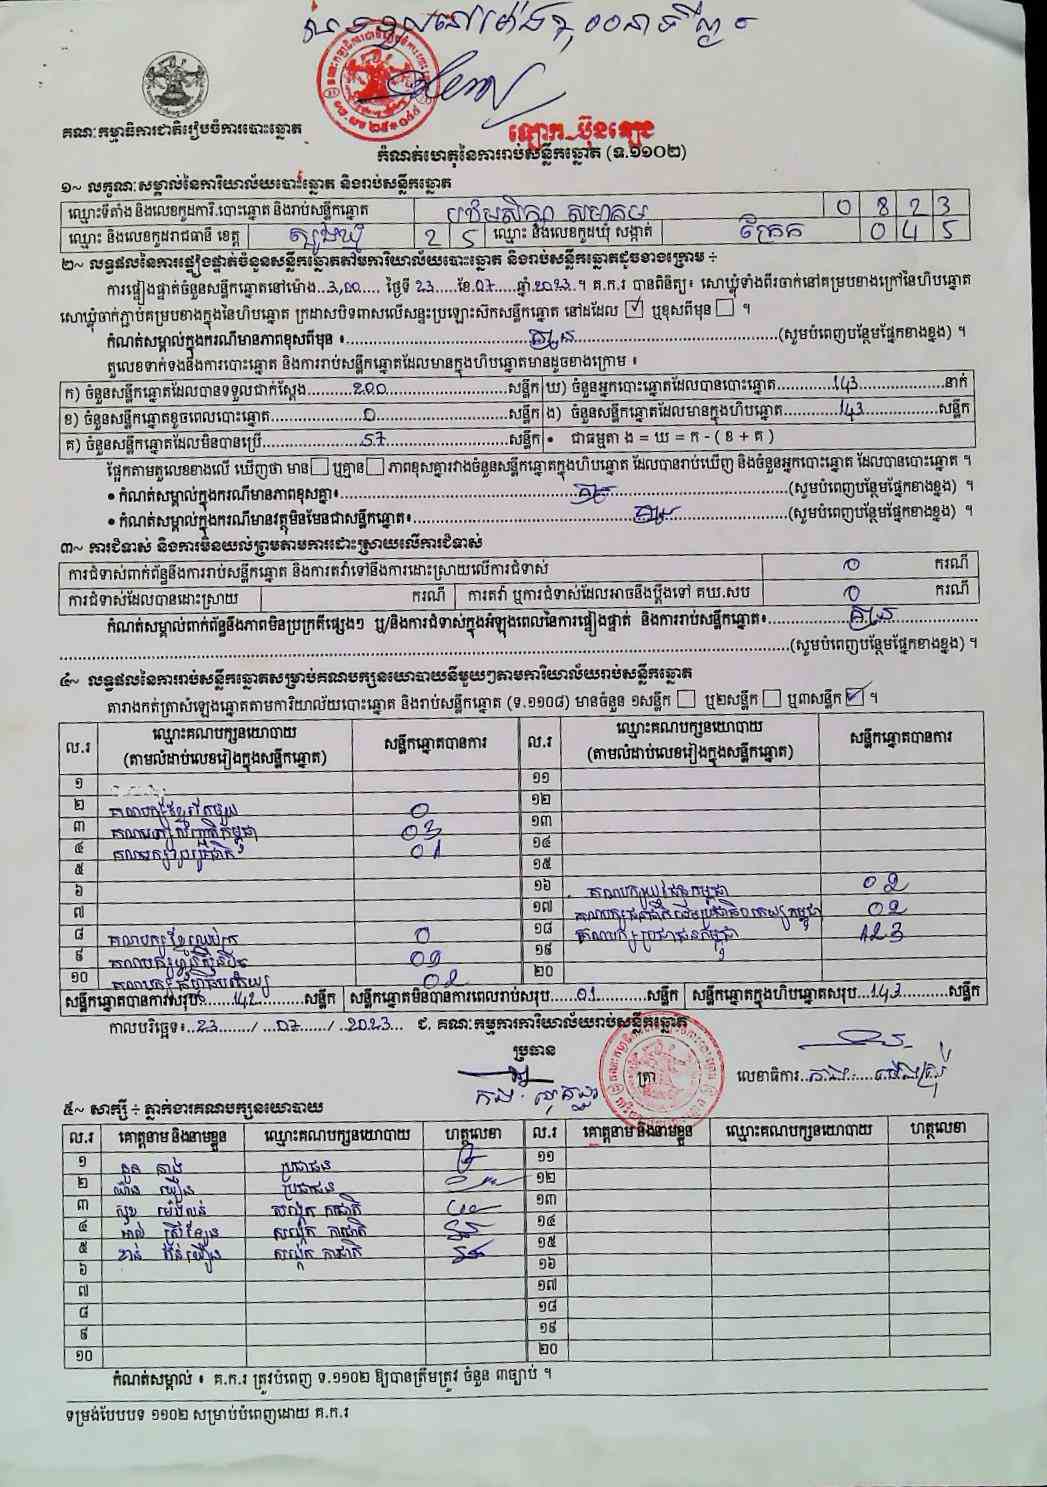 គណៈកម្មាធិការជាតិរៀបចំការបោះឆ្នោត
ឡោក ប៊ុនឡេង
កំណត់ហេតុនៃការរាប់សន្លឹកឆ្នោត (ទ.១១០២)
១~ លក្ខណៈសម្គាល់នៃការិយាល័យបោះឆ្នោត និងរាប់សន្លឹកឆ្នោត
ឈ្មោះទីតាំង និងលេខកូដការិ.បោះឆ្នោត និងរាប់សន្លឹកឆ្នោត 0 8 2 3
ឈ្មោះ និងលេខកូដរាជធានី ខេត្ត ត្បូងឃ្មុំ 2 5 ឈ្មោះ និងលេខកូដឃុំ សង្កាត់ ក្រែក 0 4 5
២~ លទ្ធផលនៃការផ្ទៀងផ្ទាត់ចំនួនសន្លឹកឆ្នោតតាមការិយាល័យបោះឆ្នោត និងរាប់សន្លឹកឆ្នោតដូចខាងក្រោម ÷
ការផ្ទៀងផ្ទាត់ចំនួនសន្លឹកឆ្នោតនៅម៉ោង...3,00.... ថ្ងៃទី 23 ខែ.07 ឆ្នាំ.2023។ គ.ក.រ បានពិនិត្យ៖ សោឃ្លុំទាំងពីរចាក់នៅគម្របខាងក្រៅនៃហិបឆ្នោត
សោឃ្លុំចាក់ភ្ជាប់គម្របខាងក្នុងនៃហិបឆ្នោត ក្រដាសបិទពាសលើសន្ទះប្រឡោះស៊កសន្លឹកឆ្នោត នៅដដែល ☑ ឬខុសពីមុន ☐ ។
កំណត់សម្គាល់ក្នុងករណីមានភាពខុសពីមុន ៖ គ្មាន (សូមបំពេញបន្ថែមផ្នែកខាងខ្នង) ។
តួលេខទាក់ទងនឹងការបោះឆ្នោត និងការរាប់សន្លឹកឆ្នោតដែលមានក្នុងហិបឆ្នោតមានដូចខាងក្រោម ៖
ក) ចំនួនសន្លឹកឆ្នោតដែលបានទទួលជាក់ស្តែង 200 សន្លឹក ឃ) ចំនួនអ្នកបោះឆ្នោតដែលបានបោះឆ្នោត 143 នាក់
ខ) ចំនួនសន្លឹកឆ្នោតខូចពេលបោះឆ្នោត 0 សន្លឹក ង) ចំនួនសន្លឹកឆ្នោតដែលមានក្នុងហិបឆ្នោត 143 សន្លឹក
គ) ចំនួនសន្លឹកឆ្នោតដែលមិនបានប្រើ 57 សន្លឹក • ជាធម្មតា ង = ឃ = ក - ( ខ + គ )
ផ្អែកតាមតួលេខខាងលើ ឃើញថា មាន ☐ ឬគ្មាន ☐ ភាពខុសគ្នារវាងចំនួនសន្លឹកឆ្នោតក្នុងហិបឆ្នោត ដែលបានរាប់ឃើញ និងចំនួនអ្នកបោះឆ្នោត ដែលបានបោះឆ្នោត ។
• កំណត់សម្គាល់ក្នុងករណីមានភាពខុសគ្នា៖ (សូមបំពេញបន្ថែមផ្នែកខាងខ្នង) ។
• កំណត់សម្គាល់ក្នុងករណីមានវត្ថុមិនមែនជាសន្លឹកឆ្នោត៖ (សូមបំពេញបន្ថែមផ្នែកខាងខ្នង) ។
៣~ ការជំទាស់ និងការមិនយល់ព្រមតាមការដោះស្រាយលើការជំទាស់
ការជំទាស់ពាក់ព័ន្ធនឹងការរាប់សន្លឹកឆ្នោត និងការតវ៉ាទៅនឹងការដោះស្រាយលើការជំទាស់ 0 ករណី
ការជំទាស់ដែលបានដោះស្រាយ ករណី ការតវ៉ា ឬការជំទាស់ដែលអាចនឹងប្តឹងទៅ គឃ.សប 0 ករណី
កំណត់សម្គាល់ពាក់ព័ន្ធនឹងភាពមិនប្រក្រតីផ្សេងៗ ឬ/និងការជំទាស់ក្នុងអំឡុងពេលនៃការផ្ទៀងផ្ទាត់ និងការរាប់សន្លឹកឆ្នោត៖ គ្មាន
(សូមបំពេញបន្ថែមផ្នែកខាងខ្នង) ។
៤~ លទ្ធផលនៃការរាប់សន្លឹកឆ្នោតសម្រាប់គណបក្សនយោបាយនីមួយៗតាមការិយាល័យរាប់សន្លឹកឆ្នោត
តារាងកត់ត្រាសំឡេងឆ្នោតតាមការិយាល័យបោះឆ្នោត និងរាប់សន្លឹកឆ្នោត (ទ.១១០៨) មានចំនួន ១សន្លឹក ☐ ឬ២សន្លឹក ☐ ឬ៣សន្លឹក ☑ ។
ល.រ ឈ្មោះគណបក្សនយោបាយ (តាមលំដាប់លេខរៀងក្នុងសន្លឹកឆ្នោត) សន្លឹកឆ្នោតបានការ ល.រ ឈ្មោះគណបក្សនយោបាយ (តាមលំដាប់លេខរៀងក្នុងសន្លឹកឆ្នោត) សន្លឹកឆ្នោតបានការ
១ ១១
២ 0 ១២
៣ 03 ១៣
៤ 01 ១៤
៥ ១៥
៦ ១៦ គណបក្សយុវជនកម្ពុជា 02
៧ ១៧ 02
៨ 0 ១៨ គណបក្សប្រជាជនកម្ពុជា 123
៩ គណបក្សហ្វ៊ុនស៊ិនប៉ិច ១៩
១០ 20
សន្លឹកឆ្នោតបានការសរុប៖ 142 សន្លឹក សន្លឹកឆ្នោតមិនបានការពេលរាប់សរុប 01 សន្លឹក សន្លឹកឆ្នោតក្នុងហិបឆ្នោតសរុប 143 សន្លឹក
កាលបរិច្ឆេទ៖ 23 / 07 / 2023 ជ. គណៈកម្មការការិយាល័យរាប់សន្លឹកឆ្នោត
ប្រធាន
ត្រា
លេខាធិការ
៥~ សាក្សី ÷ ភ្នាក់ងារគណបក្សនយោបាយ
ល.រ គោត្តនាម និងនាមខ្លួន ឈ្មោះគណបក្សនយោបាយ ហត្ថលេខា ល.រ គោត្តនាម និងនាមខ្លួន ឈ្មោះគណបក្សនយោបាយ ហត្ថលេខា
១ ប្រជាជន ១១
២ ប្រជាជន ១២
៣ ១៣
៤ ១៤
៥ ១៥
៦ ១៦
៧ ១៧
៨ ១៨
៩ ១៩
១០ 20
កំណត់សម្គាល់ ៖ គ.ក.រ ត្រូវបំពេញ ទ.១១០២ ឱ្យបានត្រឹមត្រូវ ចំនួន ៣ច្បាប់ ។
ទម្រង់បែបបទ ១១០២ សម្រាប់បំពេញដោយ គ.ក.រ